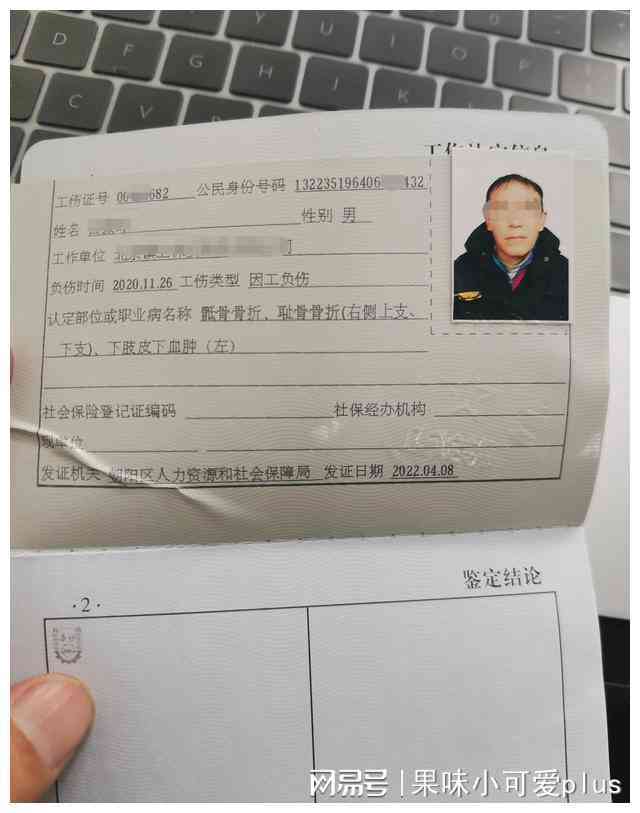 D F G H U I O P
C V B N J K L
工伤认定信息
工伤证号 00 682 公民身份号码 132235196406 132
姓名 性别 男
工作单位
负伤时间 2020.11.26 工伤类型 因工负伤
认定部位或职业病名称 骶骨骨折、耻骨骨折(右侧上支、
下支)、下肢皮下血肿（左）
社会保险登记证编码 社保经办机构
现单位
发证机关 朝阳区人力资源和社会保障局 发证日期 2022.04.08
鉴定结论
·2·
网易号 | 果味小可爱plus